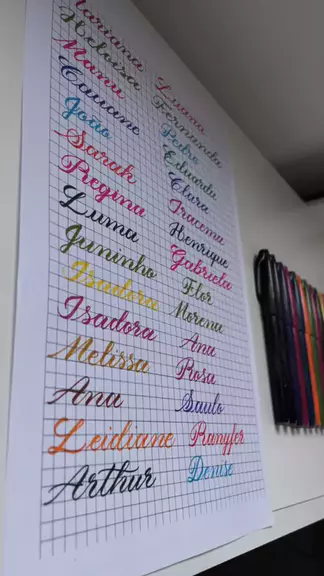 Mariana
Heloisa
Manu
Cauane
João
Sarah
Regina
Luma
Juninho
Isadora
Isadora
Melissa
Ana
Leidiane
Arthur
Luana
Fernanda
Pedro
Eduarda
Clara
Iracema
Henrique
Gabriela
Flor
Morena
Ana
Rosa
Saulo
Ranyfer
Denise